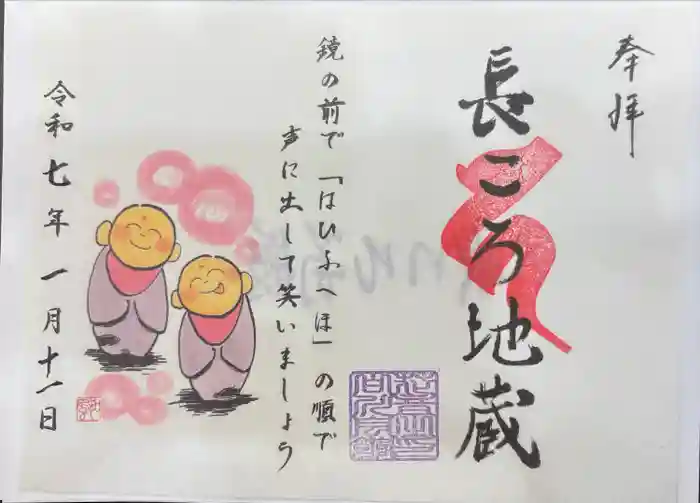 奉拝
長ころ地蔵
鏡の前で「はひふへほ」の順で
声に出して笑いましょう
令和七年一月十一日